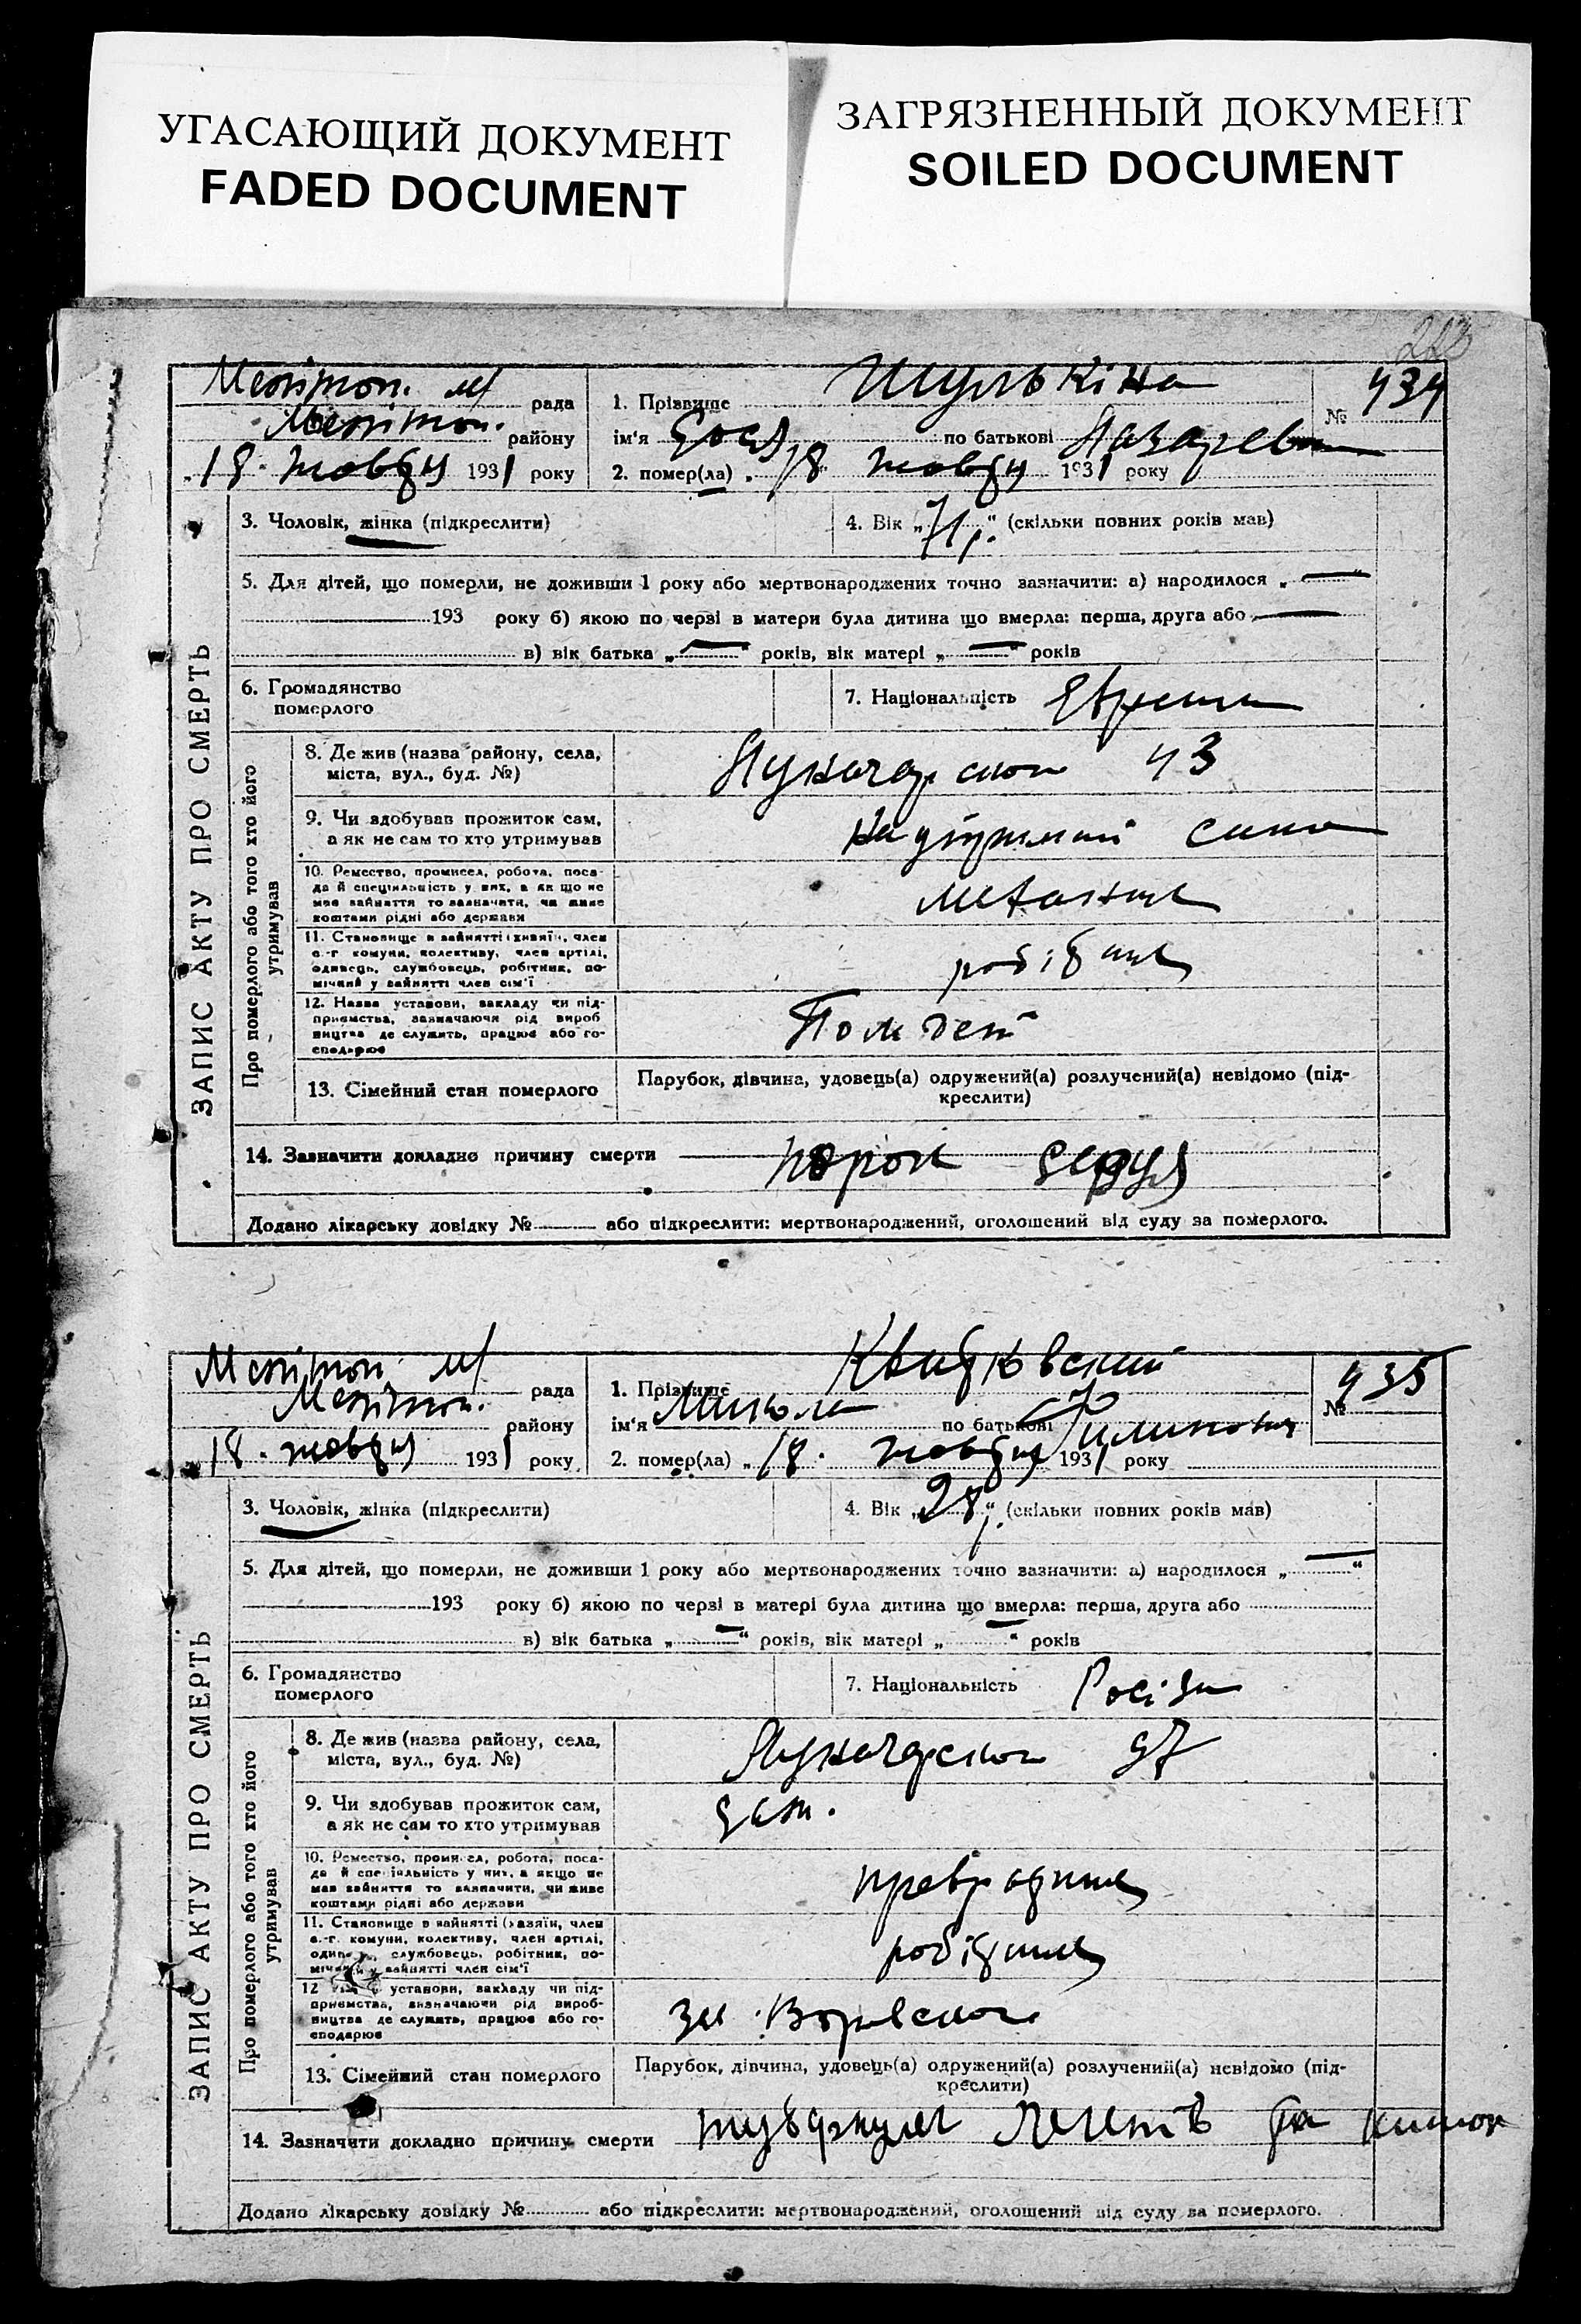 УГАСАЮЩИЙ ДОКУМЕНТ
FADED DOCUMENT
ЗАГРЯЗНЕННЫЙ ДОКУМЕНТ
SOILED DOCUMENT
223
ЗАПИС АКТУ ПРО СМЕРТЬ
Мелітоп. м/ рада
Мелітоп. району
18. жовтня 1931 року
1. Прізвище Шулькіна № 434
ім'я по батькові Лазаревна
2. помер(ла) „18 жовтня 1931 року
3. Чоловік, жінка (підкреслити)
4. Вік „71 р.“ (скільки повних років мав)
5. Для дітей, що померли, не доживши 1 року або мертвонароджених точно зазначити: а) народилося „ — “
193 року б) якою по черзі в матери була дитина що вмерла: перша, друга або —
в) вік батька „ — “ років, вік матері „ — “ років
6. Громадянство
померлого
7. Національність Єврейка
Про померлого або того хто його
утримував
8. Де жив (назва району, села,
міста, вул., буд. №)
Луначарског 43
9. Чи здобував прожиток сам,
а як не сам то хто утримував
На утриманні сина
10. Ремество, промисел, робота, поса-
да й спеціяльність у них, а як що не
мав зайняття то зазначити, чи живе
коштами рідні або держави
11. Становище в зайнятті (хазяїн, член
с.-г комуни, колективу, член артілі,
одинець, службовець, робітник, по-
мічний у зайнятті член сім'ї
робітник
12. Назва установи, закладу чи під-
приємства, зазначаючи рід вироб
ництва де служить, працює або го-
сподарює
13. Сімейний стан померлого
Парубок, дівчина, удовець(а) одружений(а) розлучений(а) невідомо (під-
креслити)
14. Зазначити докладно причину смерти порок серця
Додано лікарську довідку № або підкреслити: мертвонароджений, оголошений від суду за померлого.
ЗАПИС АКТУ ПРО СМЕРТЬ
Мелітоп. м/ рада
Мелітоп. району
18. жовтня 1931 року
1. Прізвище № 435
ім'я Микола по батькові
2. помер(ла) „18. жовтня 1931 року
3. Чоловік, жінка (підкреслити)
4. Вік „28 р.“ (скільки повних років мав)
5. Для дітей, що померли, не доживши 1 року або мертвонароджених точно зазначити: а) народилося „ — “
193 року б) якою по черзі в матері була дитина що вмерла: перша, друга або
в) вік батька „ — “ років, вік матері „ “ років
6. Громадянство
померлого
7. Національність
Про померлого або того хто його
утримував
8. Де жив (назва району, села,
міста, вул., буд. №)
Луначарског 97
9. Чи здобував прожиток сам,
а як не сам то хто утримував
сам.
10. Ремество, промисел, робота, поса-
да й спеціяльність у них, а якщо не
мав зайняття то зазначити, чи живе
коштами рідні або держави
11. Становище в зайнятті (хазяїн, член
с.-г. комуни, колективу, член артілі,
одинець, службовець, робітник, по-
мічний у зайнятті член сім'ї
робітник
12 установи, закладу чи під-
приємства, визначаючи рід вироб-
ництва де служить, працює або го-
сподарює
Воровског
13. Сімейний стан померлого
Парубок, дівчина, удовець(а) одружений(а) розлучений(а) невідомо (під-
креслити)
14. Зазначити докладно причину смерти туберкульоз легенів та кишок
Додано лікарську довідку № або підкреслити: мертвонароджений, оголошений від суду за померлого.